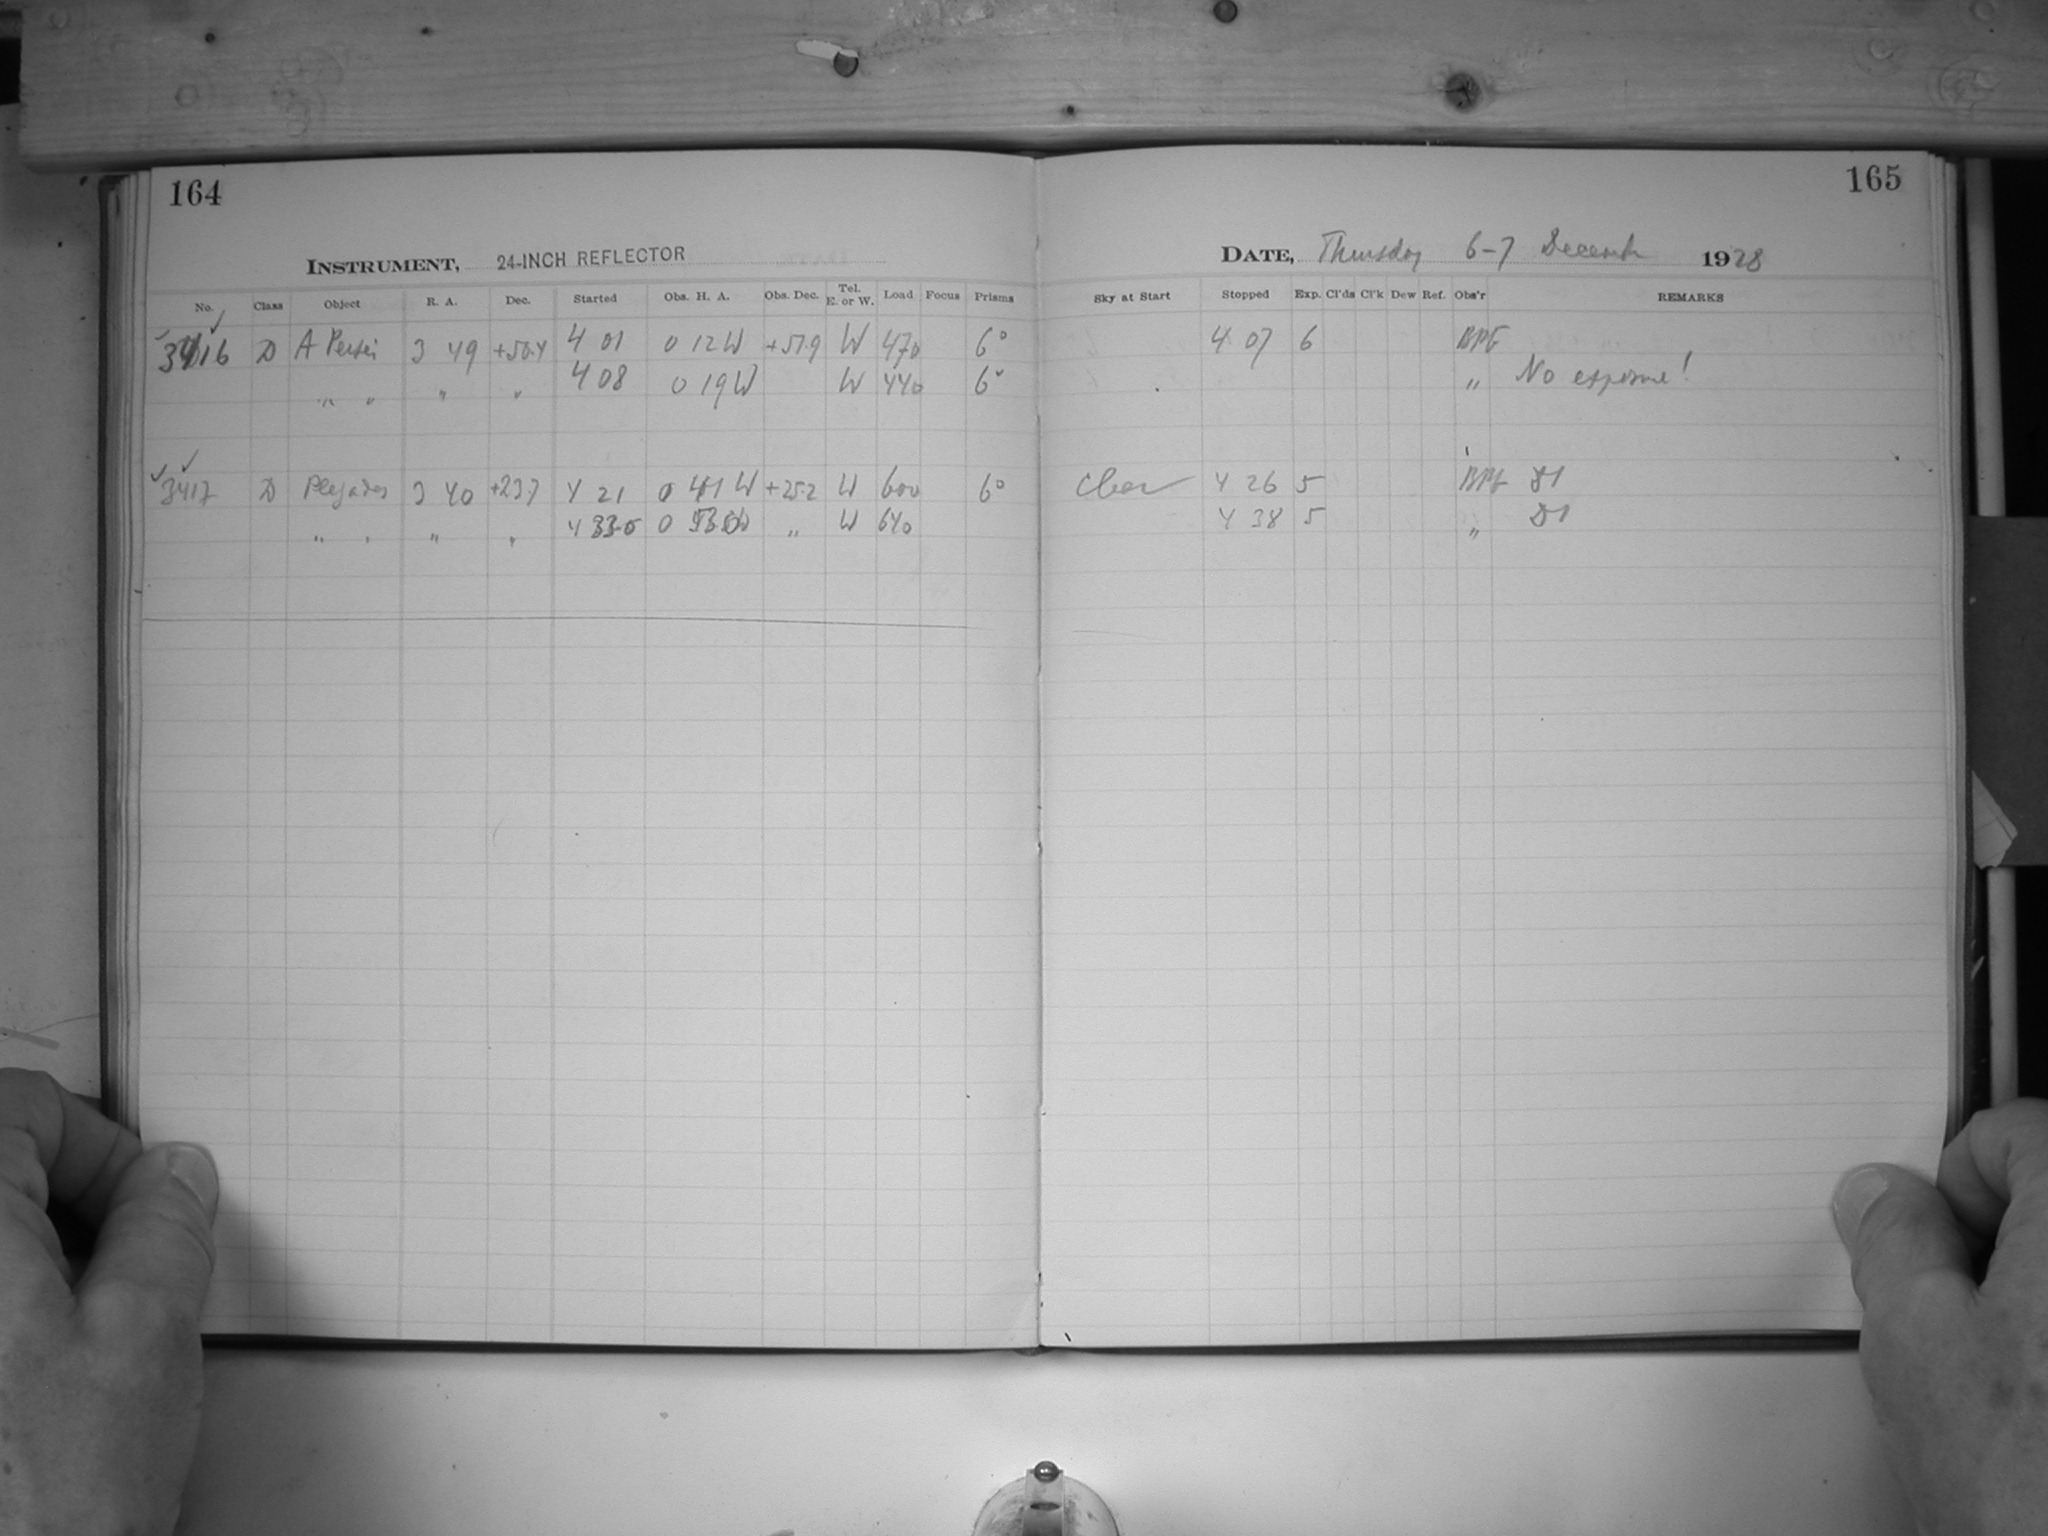 164
INSTRUMENT, 24-INCH REFLECTOR
No. Class Object R. A. Dec. Started Obs. H. A. Obs. Dec. Tel. E. or W. Load Focus Prisms
3416 D A Persei 3 49 +50.4 4 01 0 12 W +51.9 W 470 6°
" " " " 4 08 0 19 W W 440 6°
3417 D Plejades 3 40 +23.7 4 21 0 41 W +25.2 W 600 6°
" " " " 4 33 0 W " W 640
165
DATE, Thursday 6-7 December 1928
Sky at Start Stopped Exp. Cl'ds Cl'k Dew Ref. Obs'r REMARKS
4 07 6
" No exposure!
Clear 4 26 5 D1
4 38 5 " D1